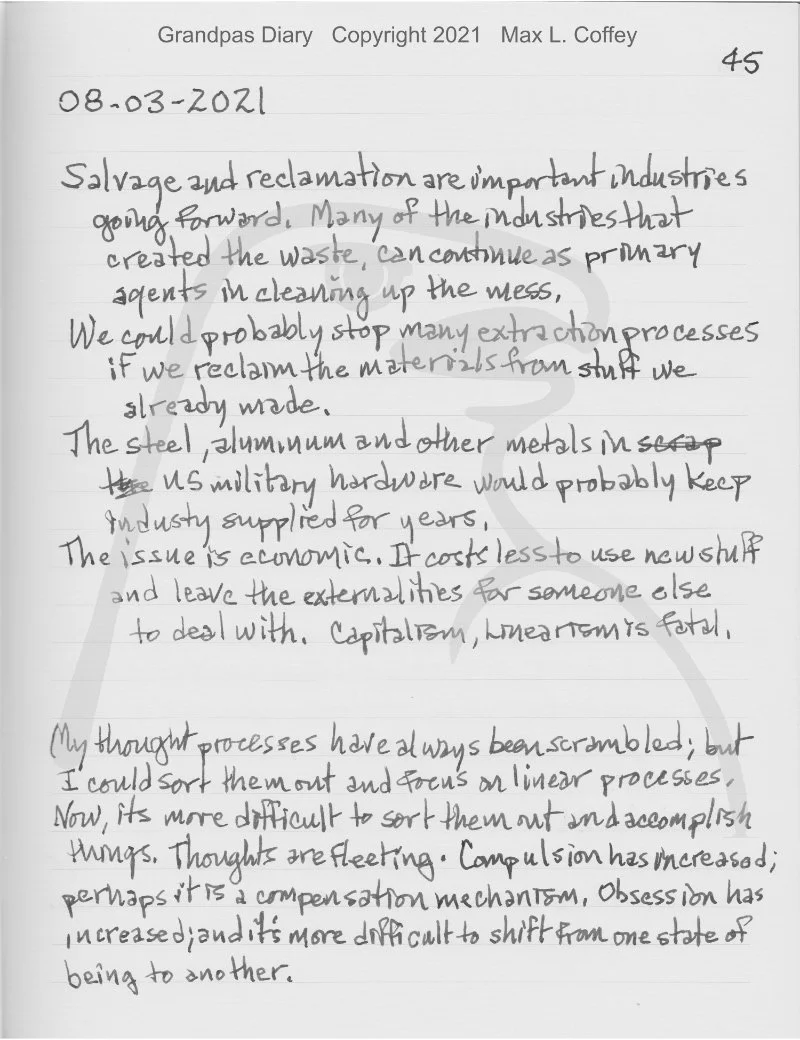 Grandpas Diary Copyright 2021 Max L. Coffey
45
08-03-2021
Salvage and reclamation are important industries
going forward. Many of the industries that
created the waste, can continue as primary
agents in cleaning up the mess.
We could probably stop many extraction processes
if we reclaim the materials from stuff we
already made.
The steel, aluminum and other metals in scrap
the US military hardware would probably keep
industy supplied for years.
The issue is economic. It costs less to use new stuff
and leave the externalities for someone else
to deal with. Capitalism, Linearism is fatal.
My thought processes have always been scrambled; but
I could sort them out and focus on linear processes.
Now, its more difficult to sort them out and accomplish
things. Thoughts are fleeting. Compulsion has increased;
perhaps it is a compensation mechanism. Obsession has
increased; and it's more difficult to shift from one state of
being to another.